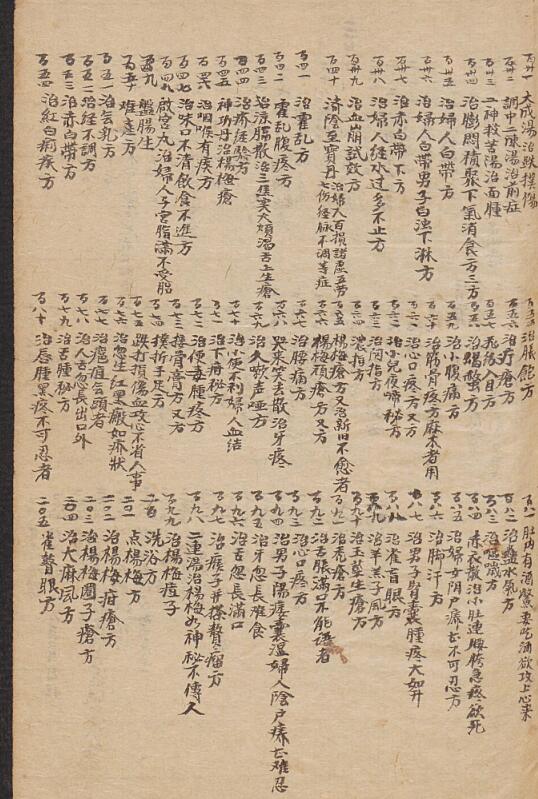 百卅一 大成湯治跌撲傷
百卅二 調中二陳湯治前症
百卅三 二神救苦湯治面腫
百卅四 治鬱悶積聚下氣消食一方三方
百卅五 治婦人白帶方
百卅六 治婦人白帶男子白濁下淋方
百卅七 治赤白帶下方
百卅八 治婦人經水过多不止方
百卅九 治血崩試效方
百四十 濟陰至寶丹 治婦人百損諸虛五劳七伤経脉不調等症
百四一 治霍乱方
百四二 霍乱腹疼方
百四三 治涼膈散治三焦实火煩渴舌上生瘡
百四四 治疹経驗方
百四五 神功丹治楊梅瘡
百四六 治咽喉有疾方
百四七 治味口不清飲食不進方
百四八 啟宮丸治婦人子宮脂滿不受胎
百四九 盤腸生
百五十 难產方
百五一 治气乳方
百五二 治経不調方
百五三 治赤白帶方
百五四 治紅白痢疾方
百五五 治脹飽方
百五六 治疔瘡方
百五七 飛絲入目方
百五八 治蝎螫方
百五九 治小腹痛方
百六十 治筋骨疼方麻木者用
百六一 治心口疼方又方
百六二 治小兒夜啼秘方
百六三 治闷指方
百六四 濃指方
百六五 楊梅瘡方又治新旧不愈者
百六六 楊梅頑瘡方又方
百六七 治腰痛方
百六八 哭來笑去散治牙疼
百六九 治久咳声哑方
百七十 治小便不利婦人血结
百七一 治下疳秘方
百七二 治便毒腫疼方
百七三 接骨膏方又方
百七四 摸折手足方
百七五 跌打損傷血攻心不省人事
百七六 治忽生紅黑瘢如疥狀
百七七 治瘟疽气頭者
百七八 治人舌忽長出口外
百七九 治舌腫秘方
百八十 治唇腫黑疼不可忍者
百八一 肚内有酒鱉要吃酒欲攻上心來
百八二 治蠱水氣方
百八三 治噎嗝方
百八四 茱萸散治小肚連腰胯急疼欲死
百八五 治婦女阴戸癢甚不可忍方
百八六 治脚汗方
百八七 治男子腎囊腫疼大如升
百八八 治雀盲眼方
百八九 治羊羔子风方
百九十 治玉莖生瘡方
百九一 治禿瘡方
百九二 治舌脹滿口不能語者
百九三 治心口疼方
百九四 治男子陽痿囊湿婦人陰戸癢甚难忍
百九五 治牙忽長难食
百九六 治舌忽長滿口
百九七 治瘊子并搽贅瘤二方
百九八 二連湯治楊梅如神秘不傳人
百九九 治楊梅痘子
二百 洗浴方
二百一 点楊梅方
二百二 治楊梅疳瘡方
二〇三 治楊梅圈子瘡方
二〇四 治大麻风方
二〇五 雀瞽眼方